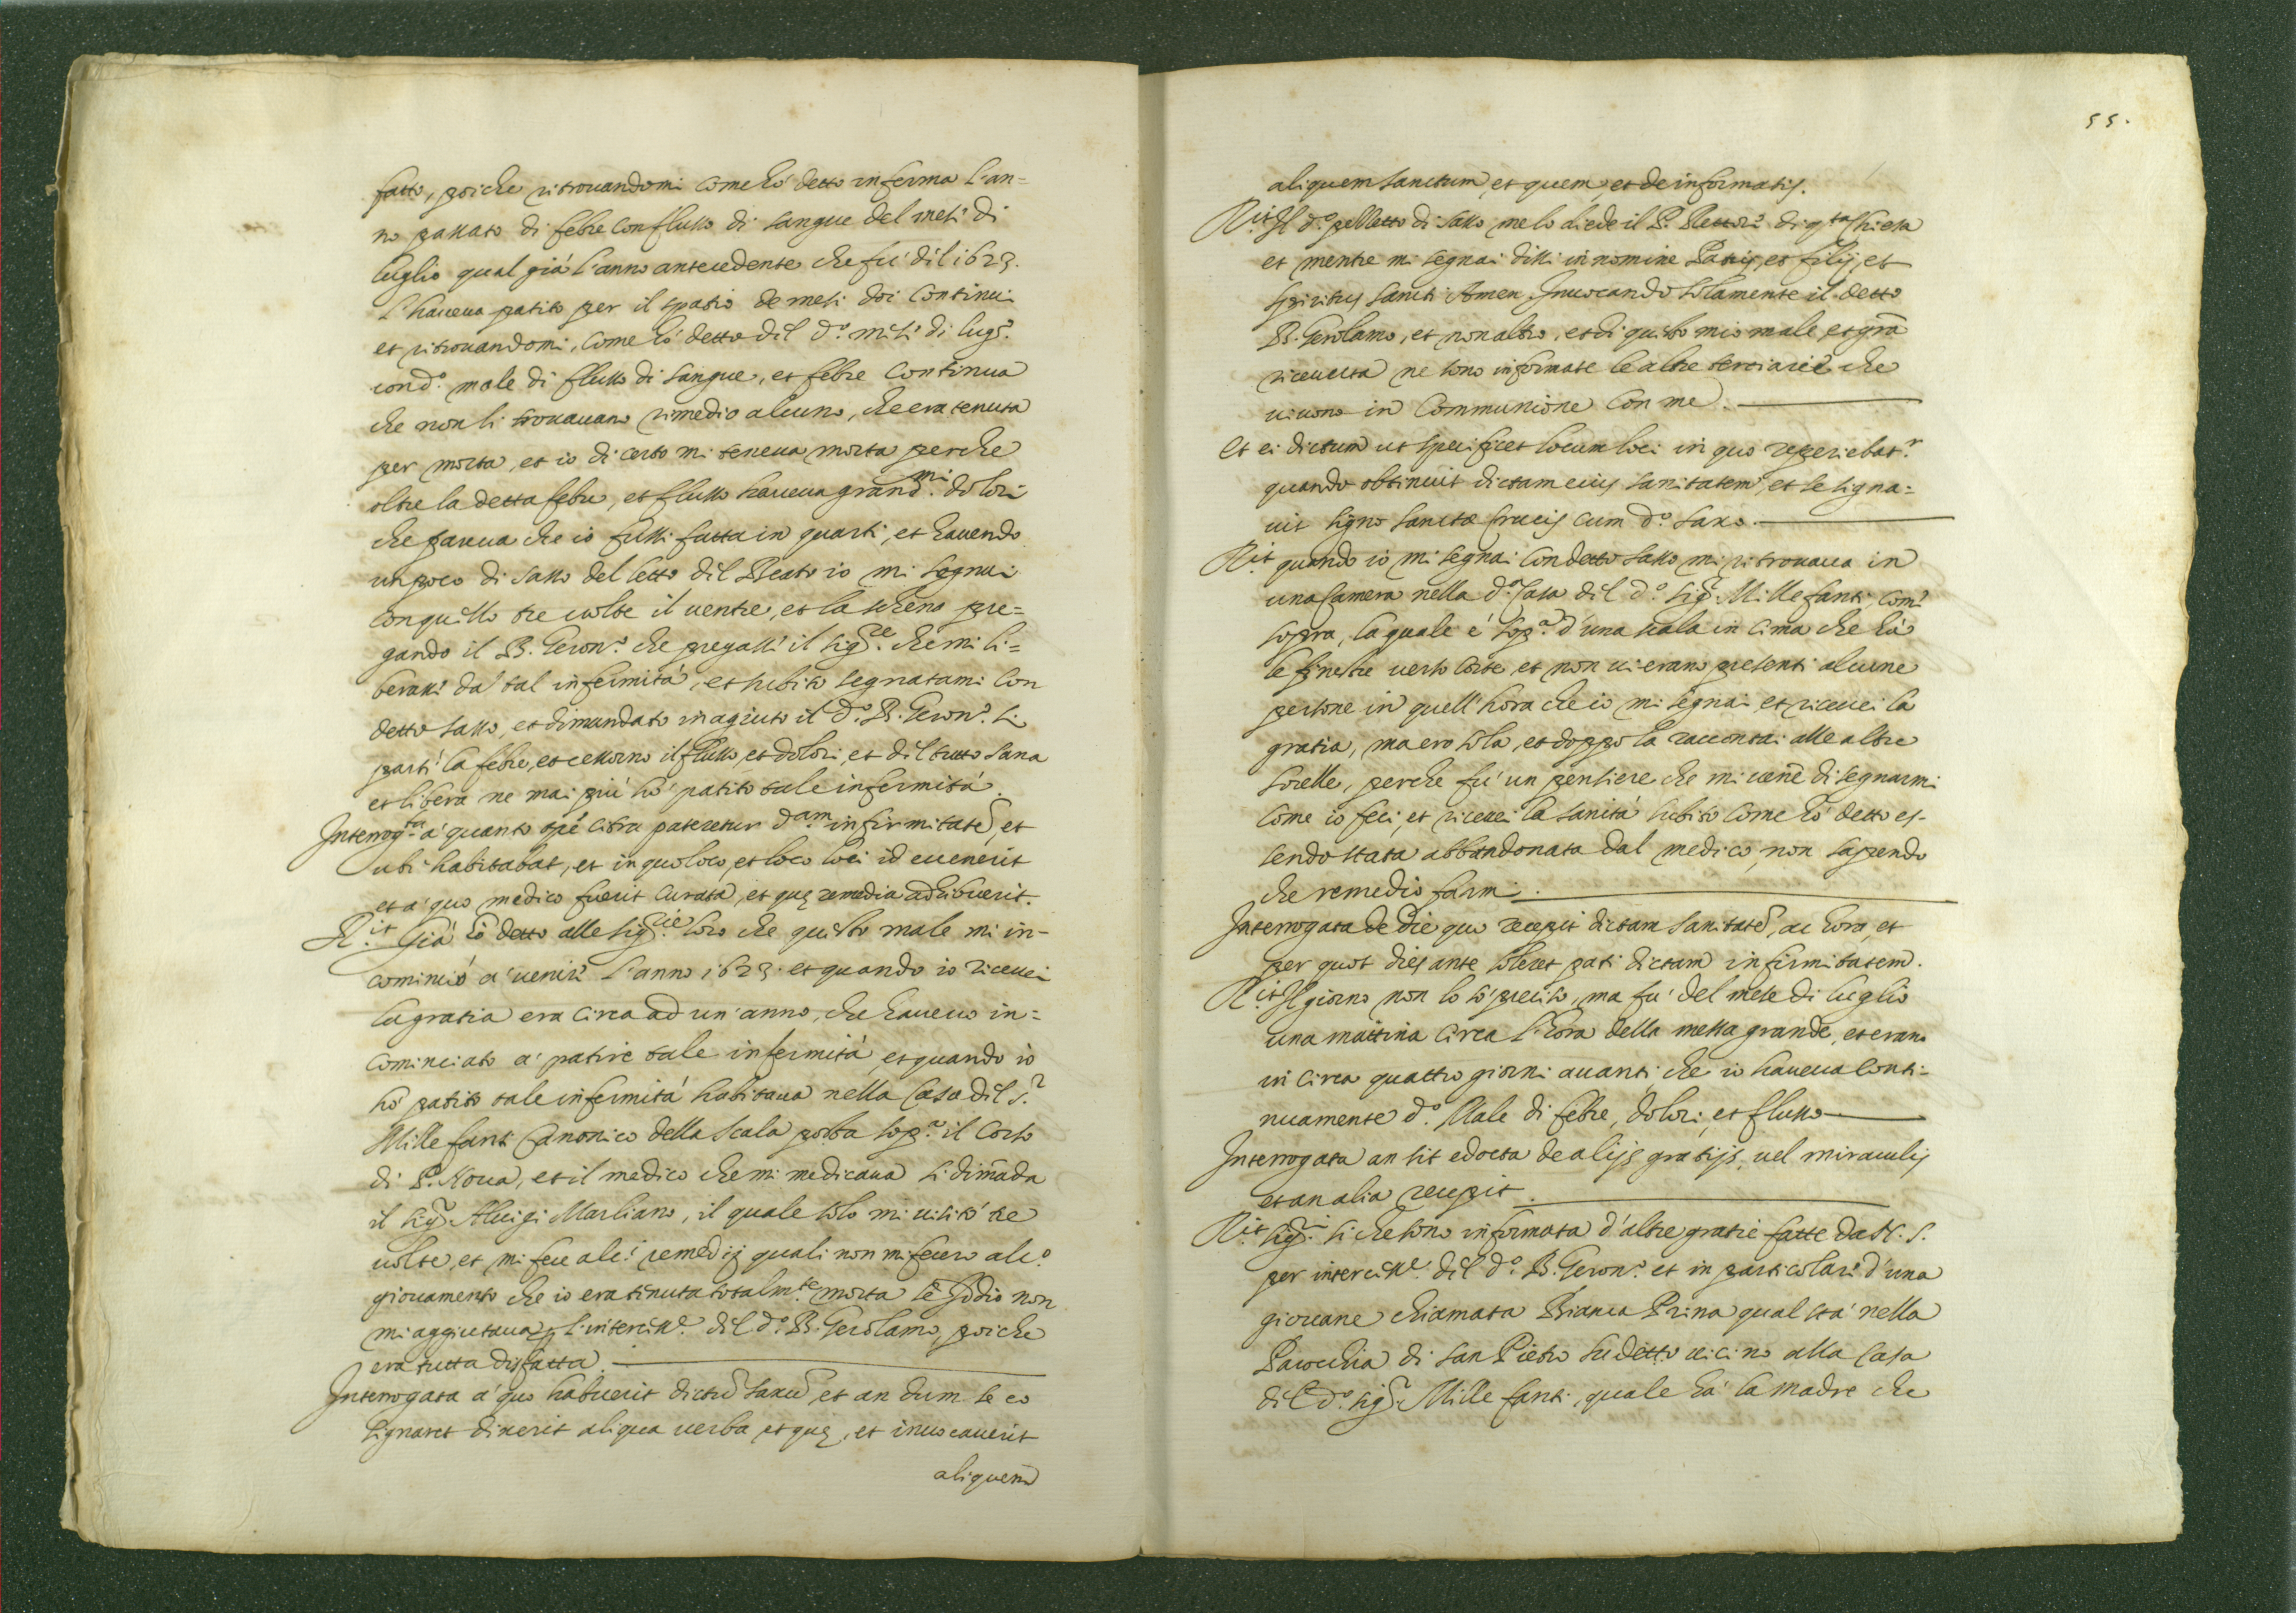 fatto, poiche ritrouandomi come hó detto inferma l'an=
no passato di febre con flusso di sangue del mese di
luglio qual giá l'anno antecedente che fu' dil 1623.
l'haueua patito per il spatio de mesi doi continui
et ritrouandomi, come hó detto dil d.º mese di lug.º
con d.º male di flusso di sangue, et febre continua
che non si trouauano rimedio alcuno, che era tenuta
per morta, et io di certo mi teneua morta perche
oltre la detta febre, et flusso haueua grand.mi dolori
che pareua che io fussi fatta in quarti, et hauendo
un poco di sasso del letto dil Beato io mi segnai
con quello tre uolte il uentre, et la schena pre=
gando il B. Geron.º che pregasse il Sig.re che mi li=
berasse da tal infermitá, et subito segnatami con
detto sasso, et dimandato in agiuto il d.º B. Geron.º si
partí la febre, et cessorno il flusso, et dolori, et dil tutto sana
et libera ne mai piú hó patito tale infermitá.
Interrog.ta a' quanto tpe citra pateretur d.am infirmitatē, et
ubi habitabat, et in quo loco, et loco loci id euenerit
et a' quo medico fuerit curata, et quę remedia adhibuerit.
R.it Giá hó detto alle Sig.rie loro che questo male mi in-
cominció a' uenire l'anno 1623. et quando io riceuei
la gratia era circa ad un'anno, che haueuo in=
cominciato a' patire tale infermitá, et quando io
hó patito tale infermitá habitaua nella Casa dil S.r
Millefanti Canonico della Scala posta sop.ª il Corso
di P. Noua, et il medico che mi medicaua si dimāda
il Sig.r Aluigi Marliano, il quale solo mi uisitó tre
uolte, et mi fece alc.i remedij quali non mi fecero alc.º
giouamento che io era tinuta totalm.te morta se Iddio non
mi aggiutaua p l'intercess.e dil d.º B. Gerolamo, poiche
era tutta disfatta.
Interrogata a' quo habuerit dictū saxū, et an dum se eo
signaret dixerit aliqua uerba, et quę, et inuocauerit
aliquem
55.
aliquem sanctum, et quem, et de informatis.
R.it Il d.º pezzetto di sasso me lo diede il P. Rettore di q.ta Chiesa
et mentre mi segnai dissi in nomine Patris, et filij, et
spiritus sancti Amen, Inuocando solamente il detto
B. Gerolamo, et non altro, et di questo mio male, et grā
riceuuta ne sono informate le altre terciarie che
uiuono in Communione con me.
Et ei dictum ut specificet locum loci in quo reperiebat.r
quando obtinuit dictam eius sanitatem, et se signa=
uit signo sanctæ Crucis cum d.º saxo.
R.it quando io mi segnai con detto sasso mi ritrouaua in
una Camera nella d.ª Casa dil d.º Sig.r Millefanti, come
sopra, la quale é sop.ª d'una scala in cima che há
le finestre uerso Corte, et non ui erano presenti alcune
persone in quell'hora che io mi segnai, et riceuei la
gratia, ma ero sola, et doppo la raccontai alle altre
sorelle, perche fu' un pensiere che mi uenē di segnarmi
come io feci, et riceuei la sanitá subito come hó detto es-
sendo stata abbandonata dal medico, non sapendo
che remedio farmi.
Interrogata de die quo recepit dictam sanitatē, ac hora, et
per quot dies ante soleret pati dictam infirmitatem.
R.it Il giorno non lo só preciso, ma fu' del mese di luglio
una mattina circa l'hora della messa grande, et erano
in circa quattro giorni auanti, che io haueua conti-
nuamente d.º Male di febre, dolori, et flusso
Interrogata an sit edocta de alijs gratijs, uel miraculis
et an alia recepit.
R.it Sig.ri si che sono informata d'altre gratie fatte da N. S.
per intercess.e dil d.º B. Geron.º et in particolare d'una
giouane chiamata Bianca Prina qual stá nella
Parochia di san Pietro sudetto uicino alla Casa
dil d.º Sig.r Millefanti, quale há la madre che